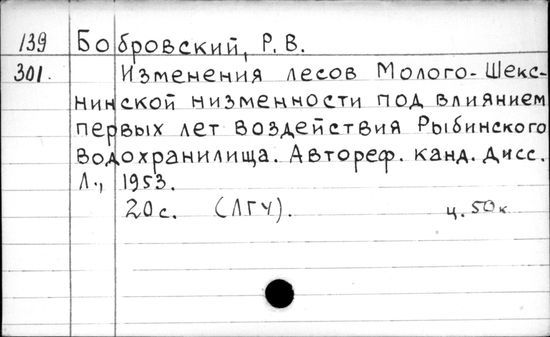 139 Бобровский, Р. В.
301. Изменения лесов Молого-Шекс-
нинской низменности под влиянием
первых лет воздействия Рыбинского
водохранилища. Автореф. канд. дисс.
Л., 1953.
20 с. (ЛГУ). ц. 50 к